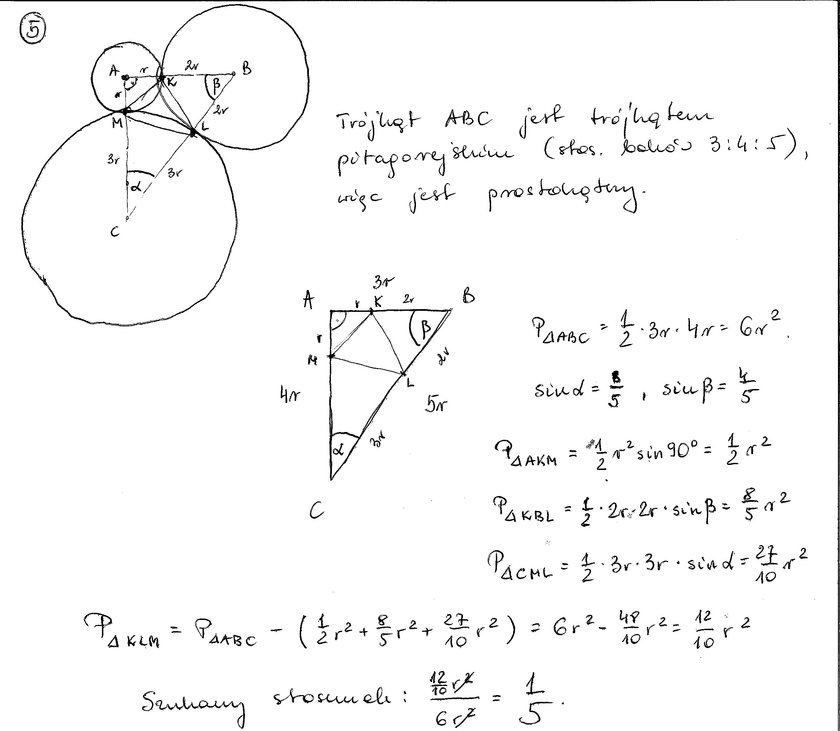 ⑤
A r 2r B
K
r β
M 2r
L
3r 3r
α
C
Trójkąt ABC jest trójkątem
pitagorejskim (stos. boków 3:4:5),
więc jest prostokątny.
3r
A r K 2r B
r β
M 2r
L
4r 5r
α 3r
C
P△ABC = 1/2 · 3r · 4r = 6r².
sinα = 3/5 , sinβ = 4/5
P△AKM = 1/2 r² sin 90° = 1/2 r²
P△KBL = 1/2 · 2r · 2r · sinβ = 8/5 r²
P△CML = 1/2 · 3r · 3r · sinα = 27/10 r²
P△KLM = P△ABC − (1/2 r² + 8/5 r² + 27/10 r²) = 6r² − 48/10 r² = 12/10 r²
Szukany stosunek : (12/10 r²)/(6r²) = 1/5 .